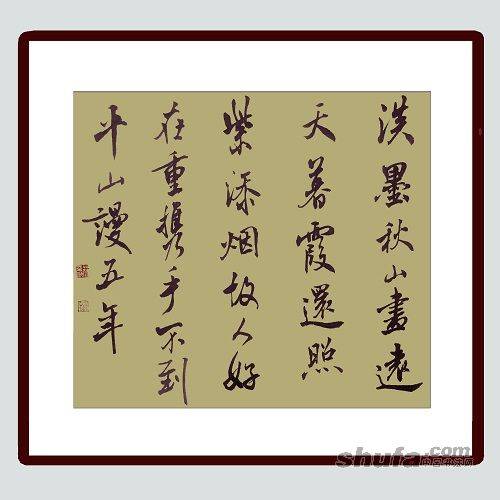 淡墨秋山畫遠
天暮霞還照
紫添烟故人好
在重攜手不到
平山謾五年
shufa.com
中国书法网